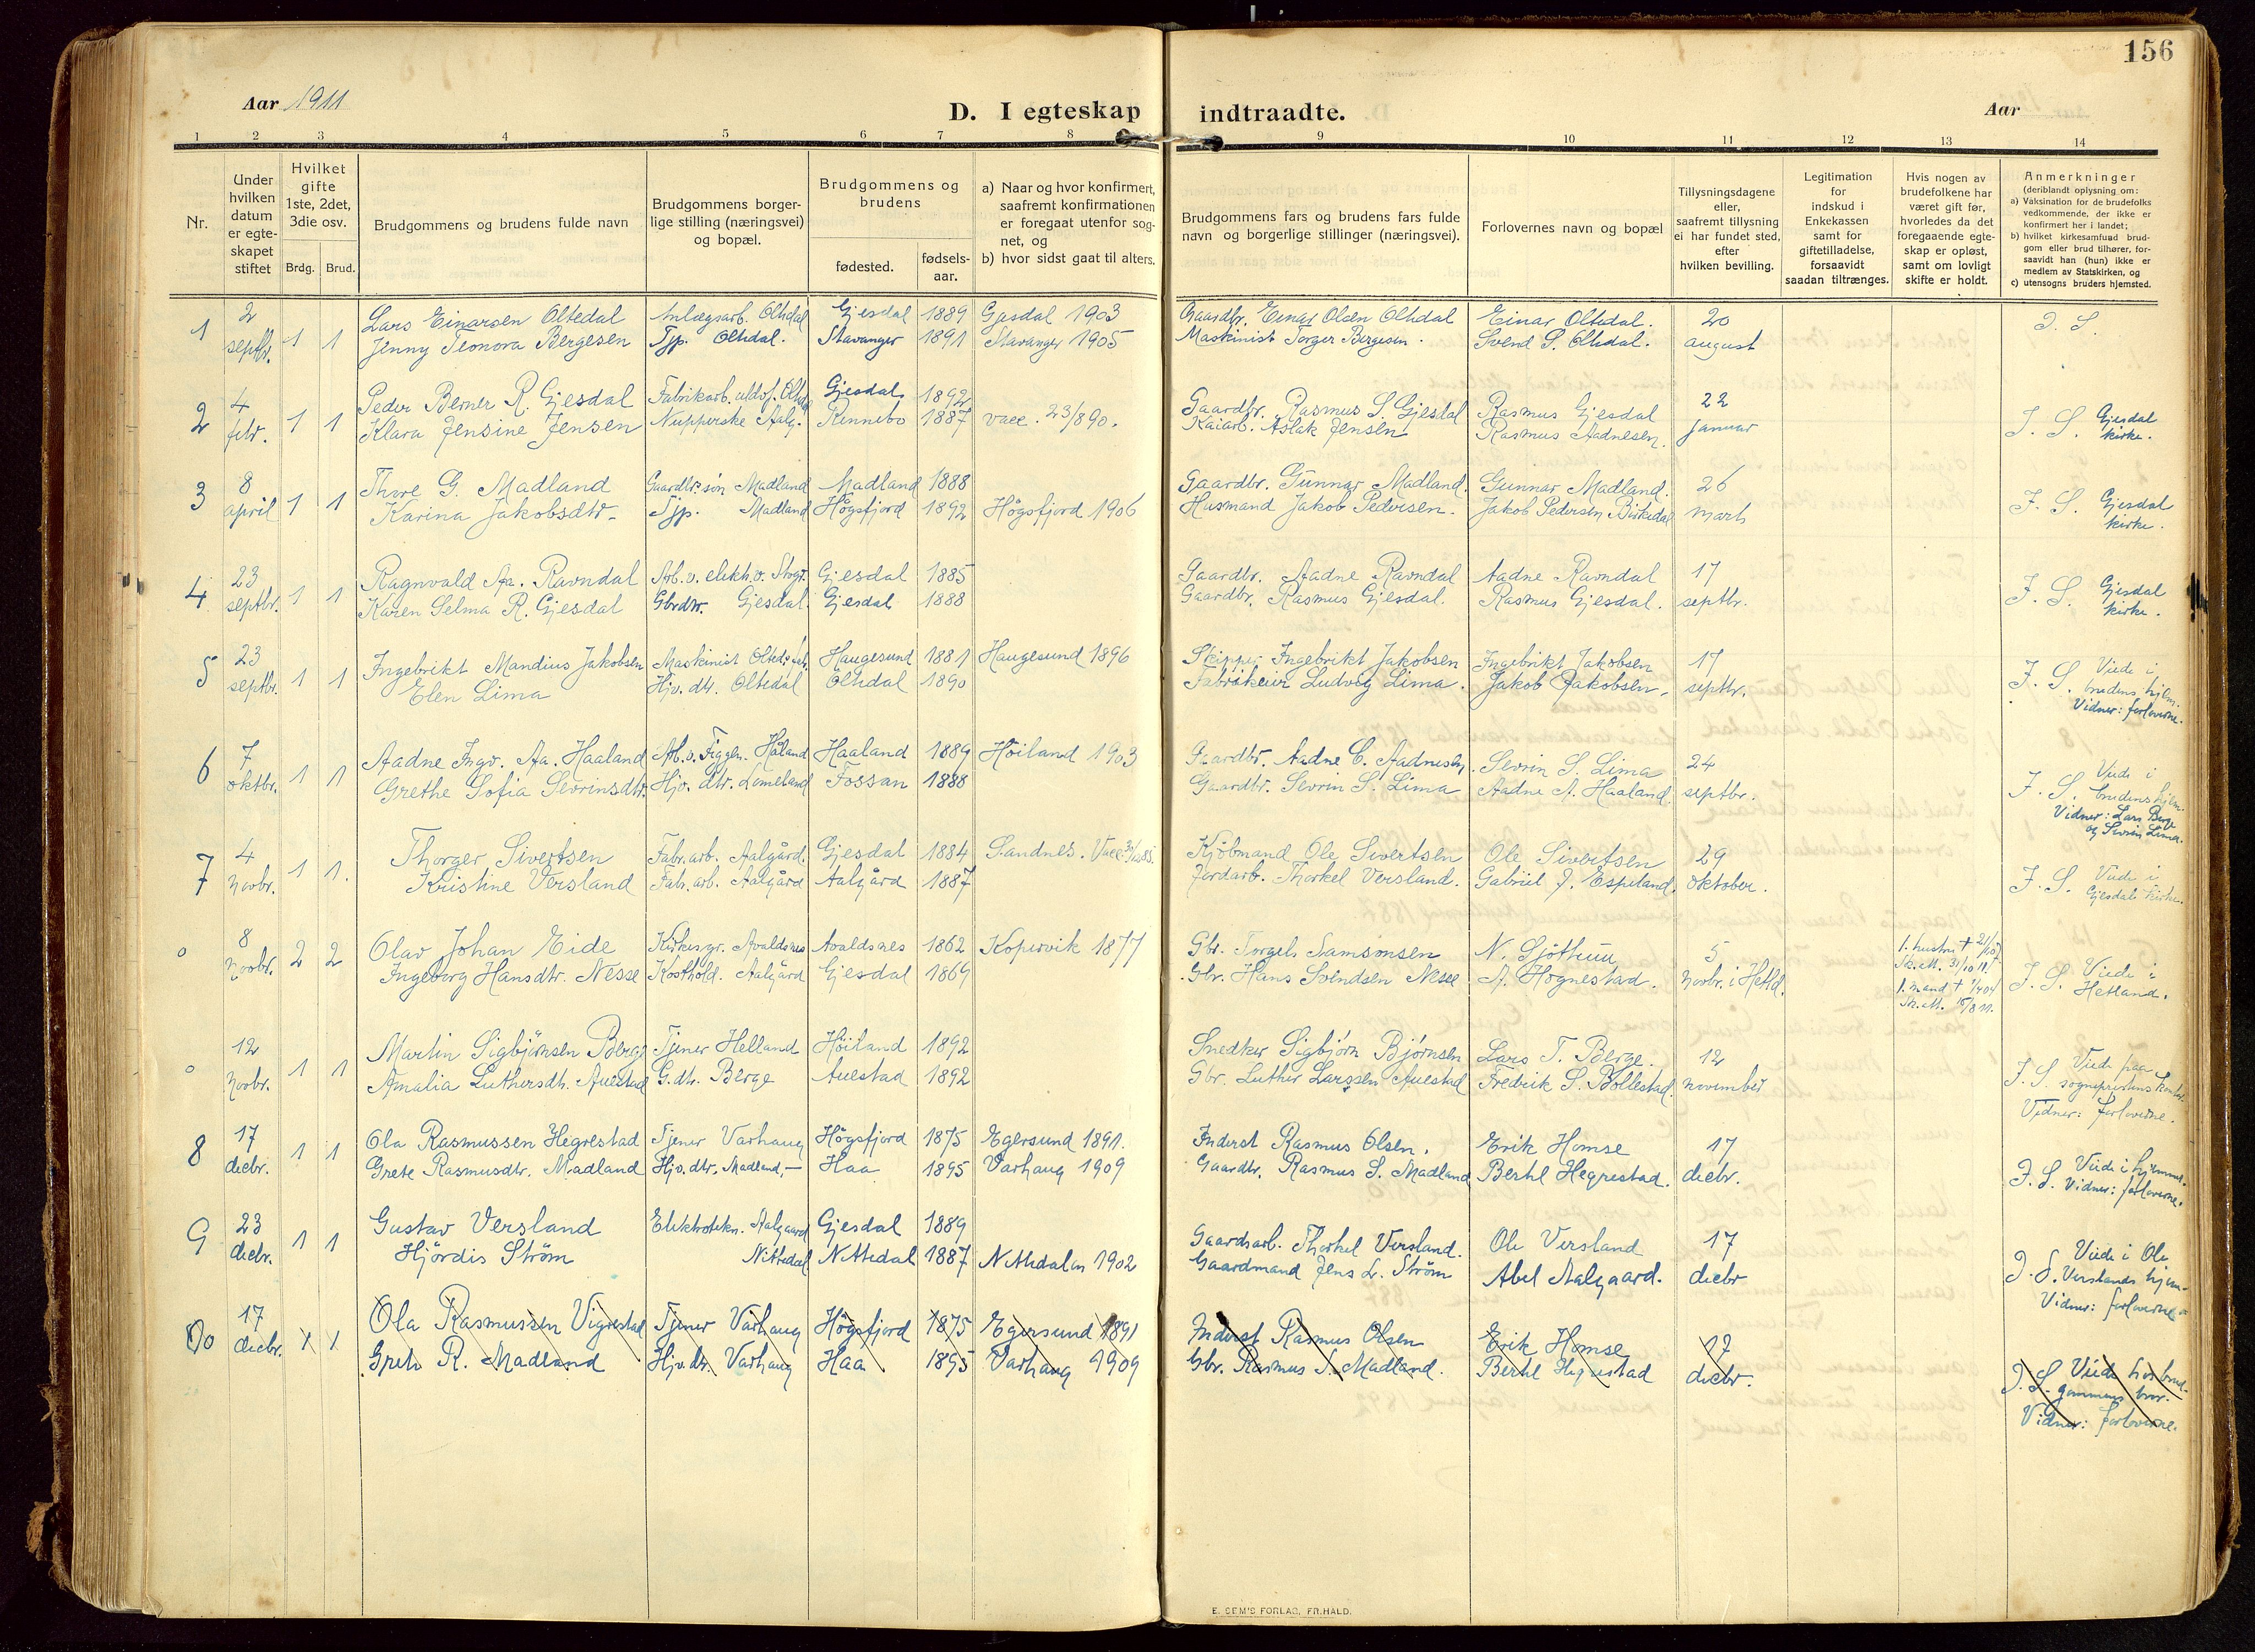 156
Aar 1911
D. I egteskap indtraadte.
Aar
1 2 3 4 5 6 7 8 9 10 11 12 13 14
Nr.
Under hvilken datum er egte-skapet stiftet
Hvilket gifte 1ste, 2det, 3die osv.
Brdg. Brud.
Brudgommens og brudens fulde navn
Brudgommens borger-lige stilling (næringsvei) og bopæl.
Brudgommens og brudens
fødested. fødsels-aar.
a) Naar og hvor konfirmert, saafremt konfirmationen er foregaat utenfor sog-net, og
b) hvor sidst gaat til alters.
Brudgommens fars og brudens fars fulde navn og borgerlige stillinger (næringsvei).
Forlovernes navn og bopæl
Tillysningsdagene eller, saafremt tillysning ei har fundet sted, efter hvilken bevilling.
Legitimation for indskud i Enkekassen samt for giftetilladelse, forsaavidt saadan tiltrænges.
Hvis nogen av brudefolkene har været gift før, hvorledes da det foregaaende egte-skap er opløst, samt om lovligt skifte er holdt.
Anmerkninger
(deriblandt oplysning om:
a) Vaksination for de brudefolks vedkommende, der ikke er konfirmert her i landet;
b) hvilket kirkesamfund brud-gom eller brud tilhører, for-saavidt han (hun) ikke er medlem av Statskirken, og
c) utensogns bruders hjemsted.
1 2 septbr. 1 1 Lars Einarsen Oltedal Anlægsarb. Oltedal Gjesdal 1889 Gjesdal 1903 Gaardbr. Einar Olsen Oltedal Einar Oltedal. 20 august J. S.
Jenny Teonora Bergesen Tjp. Oltedal. Stavanger 1891 Stavanger 1905 Maskinist Torger Bergesen. Svend S. Oltedal.
2 4 febr. 1 1 Peder Berner R. Gjesdal Fabrikarb. Gjesdal 1892 Gaardbr. Rasmus S. Gjesdal Rasmus Gjesdal 22 januar J. S. Gjesdal kirke.
Klara Jensine Jensen Nupperske Aalg. Rennebo 1887 vacc. 23/890. Kaiarb. Aslak Jensen Rasmus Aadnesen.
3 8 april 1 1 Thore G. Madland Gaardbr.søn Madland Madland 1888 Gaardbr. Gunnar Madland. Gunnar Madland. 26 marts J. S. Gjesdal kirke.
Karina Jakobsdtr. Tjp. Madland Høgsfjord 1892 Høgsfjord 1906 Husmand Jakob Pedersen. Jakob Pedersen Birkedal
4 23 septbr. 1 1 Ragnvald Aa. Ravndal Arb. v. elektr. v. Gjesdal 1885 Gaardbr. Aadne Ravndal Aadne Ravndal 17 septbr. J. S. Gjesdal kirke.
Karen Selma R. Gjesdal Gbrdtr. Gjesdal. Gjesdal 1888 Gaardbr. Rasmus Gjesdal. Rasmus Gjesdal.
5 23 septbr. 1 1 Ingebrikt Mandius Jakobsen Maskinist Olted. fab. Haugesund 1881 Haugesund 1896 Skipper Ingebrikt Jakobsen Ingebrikt Jakobsen 17 septbr. J. S. Viede i brudens hjem.
Elen Lima Hjv. dtr. Oltedal Oltedal 1890 Fabrikeier Ludvig Lima. Jakob Jakobsen. Vidner: forloverne.
6 7 oktbr. 1 1 Aadne Ingv. Aa. Haaland Arb. v. Figgen. Håland Haaland 1889 Høiland 1903 Gaardbr. Aadne C. Aadnesen. Sevrin S. Lima 24 septbr. J. S. Viede i brudens hjem.
Grethe Sofia Sevrinsdtr. Hjv. dtr. Limeland Fossan 1888 Gaardbr. Sevrin S. Lima Aadne A. Haaland. Vidner: Lars Berge og Sevrin Lima.
7 4 novbr. 1 1. Thorger Sivertsen Fabr. arb. Aalgård. Gjesdal 1884 Sandnes. Vacc. Kjöbmand Ole Sivertsen Ole Sivertsen 29 oktober. J. S. Viede i Gjesdal kirke.
Kristine Versland Fabr. arb. Aalgård Aalgård 1887 Jordarb. Thorkel Versland. Gabriel J. Espeland.
0 8 novbr. 2 2 Olav Johan Eide Kirkesgr. Avaldsnes Avaldsnes 1862 Kopervik 1877 Gbr. Torgels Samsonsen N. Sjøthun 5 novbr. i Hetld. 1. hustru † 21/ J. S. Viede i Hetland.
Ingeborg Hansdtr. Nesse Kosthold. Aalgård Gjesdal 1869 Gbr. Hans Svendsen Nesse A. Høgnestad. Sk.att. 31/10 11. 1. mand † 1/4 04 Sk. att. 15/8 11.
0 12 novbr. 1 1 Martin Sigbjørnsen Berge Tjener Helland Høiland 1892 Snedker Sigbjørn Bjørnsen Lars T. Berge. 12 november J. S. Viede paa sogneprestens kontor.
Amalia Luthersdtr. Auestad G. dtr. Berge Auestad 1892 Gbr. Luther Larssen Auestad Fredrik S. Bollestad. Vidner: forloverne.
8 17 decbr. 1 1 Ola Rasmussen Hegrestad Tjener Varhaug Høgsfjord 1875 Egersund 1891. Inderst Rasmus Olsen. Erik Homse 17 decbr. J. S. Viede i hjemmet.
Grete Rasmusdtr. Madland Hjv. dtr. Madland. Haa 1895 Varhaug 1909 Gaardbr. Rasmus S. Madland Bertel Hegrestad. Vidner: forloverne.
9 23 decbr. 1 1 Gustav Versland Elektrotekn. Aalgaard Gjesdal 1889 Gaardsarb. Thorkel Versland. Ole Versland 17 decbr J. S. Viede i Ole Verslands hjem.
Hjördis Ström Nittedal Nittedal 1887 Nittedalen 1902 Gaardmand Jens L. Ström Abel Aalgaard. Vidner: forloverne.
17 decbr. 1 1 Ola Rasmussen Vigrestad Tjener Varhaug Høgsfjord 1875 Egersund 1891 Inderst Rasmus Olsen Erik Homse 17 decbr. J. S. Viede hos brud-gommens bror.
Grete R. Madland Hjv. dtr. Varhaug Haa 1895 Varhaug 1909 Gbr. Rasmus S. Madland. Bertel Hegrestad Vidner: forloverne.
E. SEM'S FORLAG, FR.HALD.